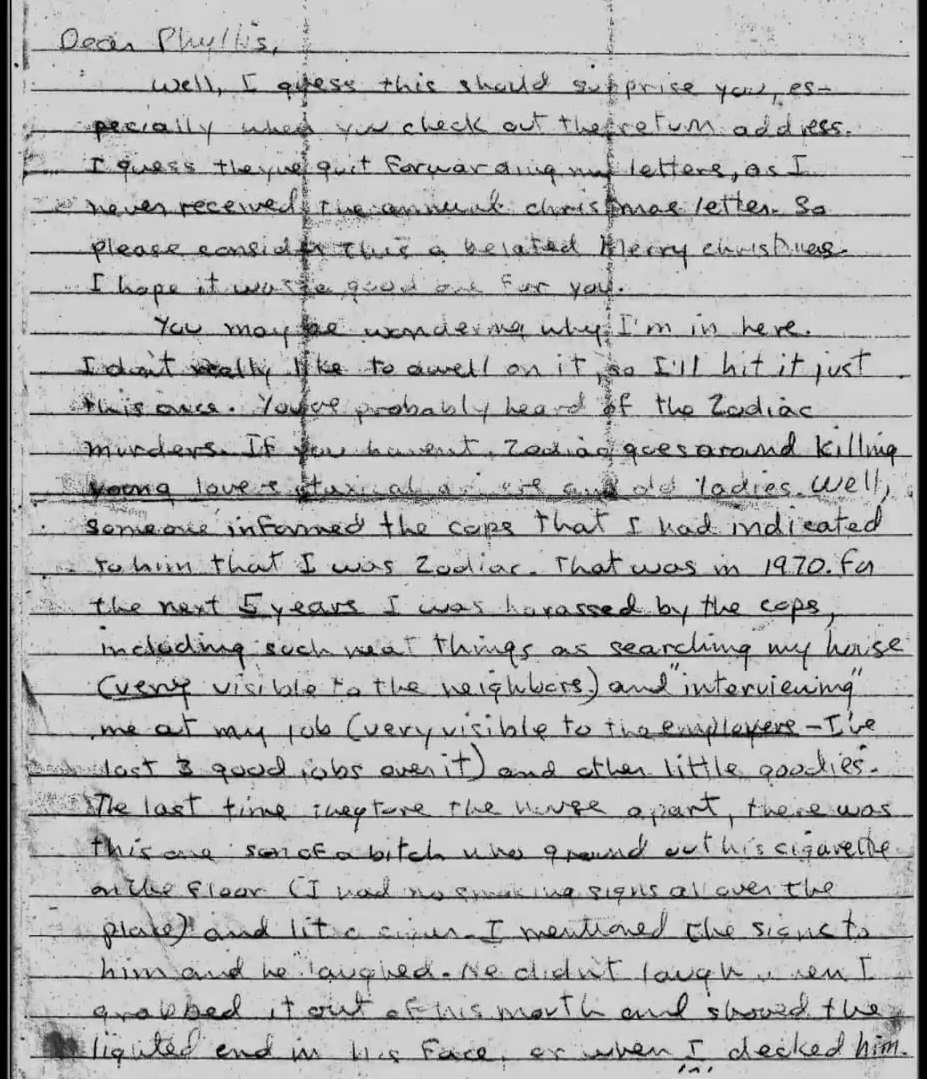 Dear Phyllis,
Well, I guess this should surprise you, es-
pecially when you check out the return address.
I guess they've quit forwarding my letters, as I
never received the annual christmas letter. So
please consider this a belated Merry christmas.
I hope it was a good one for you.
You may be wondering why I'm in here.
I don't really like to dwell on it, so I'll hit it just
this once. You've probably heard of the Zodiac
murders. If you haven't, Zodiac goes around killing
young lovers, taxicab drivers and old ladies. Well,
someone informed the cops that I had indicated
to him that I was Zodiac. That was in 1970. For
the next 5 years I was harassed by the cops,
including such neat things as searching my house
(very visible to the neighbors) and "interviewing"
me at my job (very visible to the employers - I've
lost 3 good jobs over it) and other little goodies.
The last time they tore the house apart, there was
this one son of a bitch who ground out his cigarette
on the floor (I had no smoking signs all over the
place) and lit a cigar. I mentioned the signs to
him and he laughed. He didn't laugh when I
grabbed it out of his mouth and shoved the
lighted end in his face, or when I decked him.